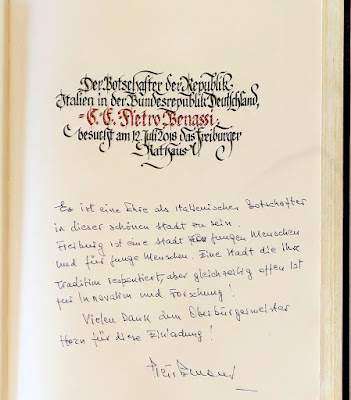 Der Botschafter der Republik
Italien in der Bundesrepublik Deutschland,
S. E. Pietro Benassi
besucht am 12. Juli 2018 das Freiburger
Rathaus
Es ist eine Ehre als Italienischer Botschafter
in dieser schönen Stadt zu sein.
Freiburg ist eine Stadt jungen Menschen
und für junge Menschen. Eine Stadt die ihre
Tradition respektiert, aber gleichzeitig offen ist
für Innovation und Forschung!
Vielen Dank dem Oberbürgermeister
Horn für diese Einladung!